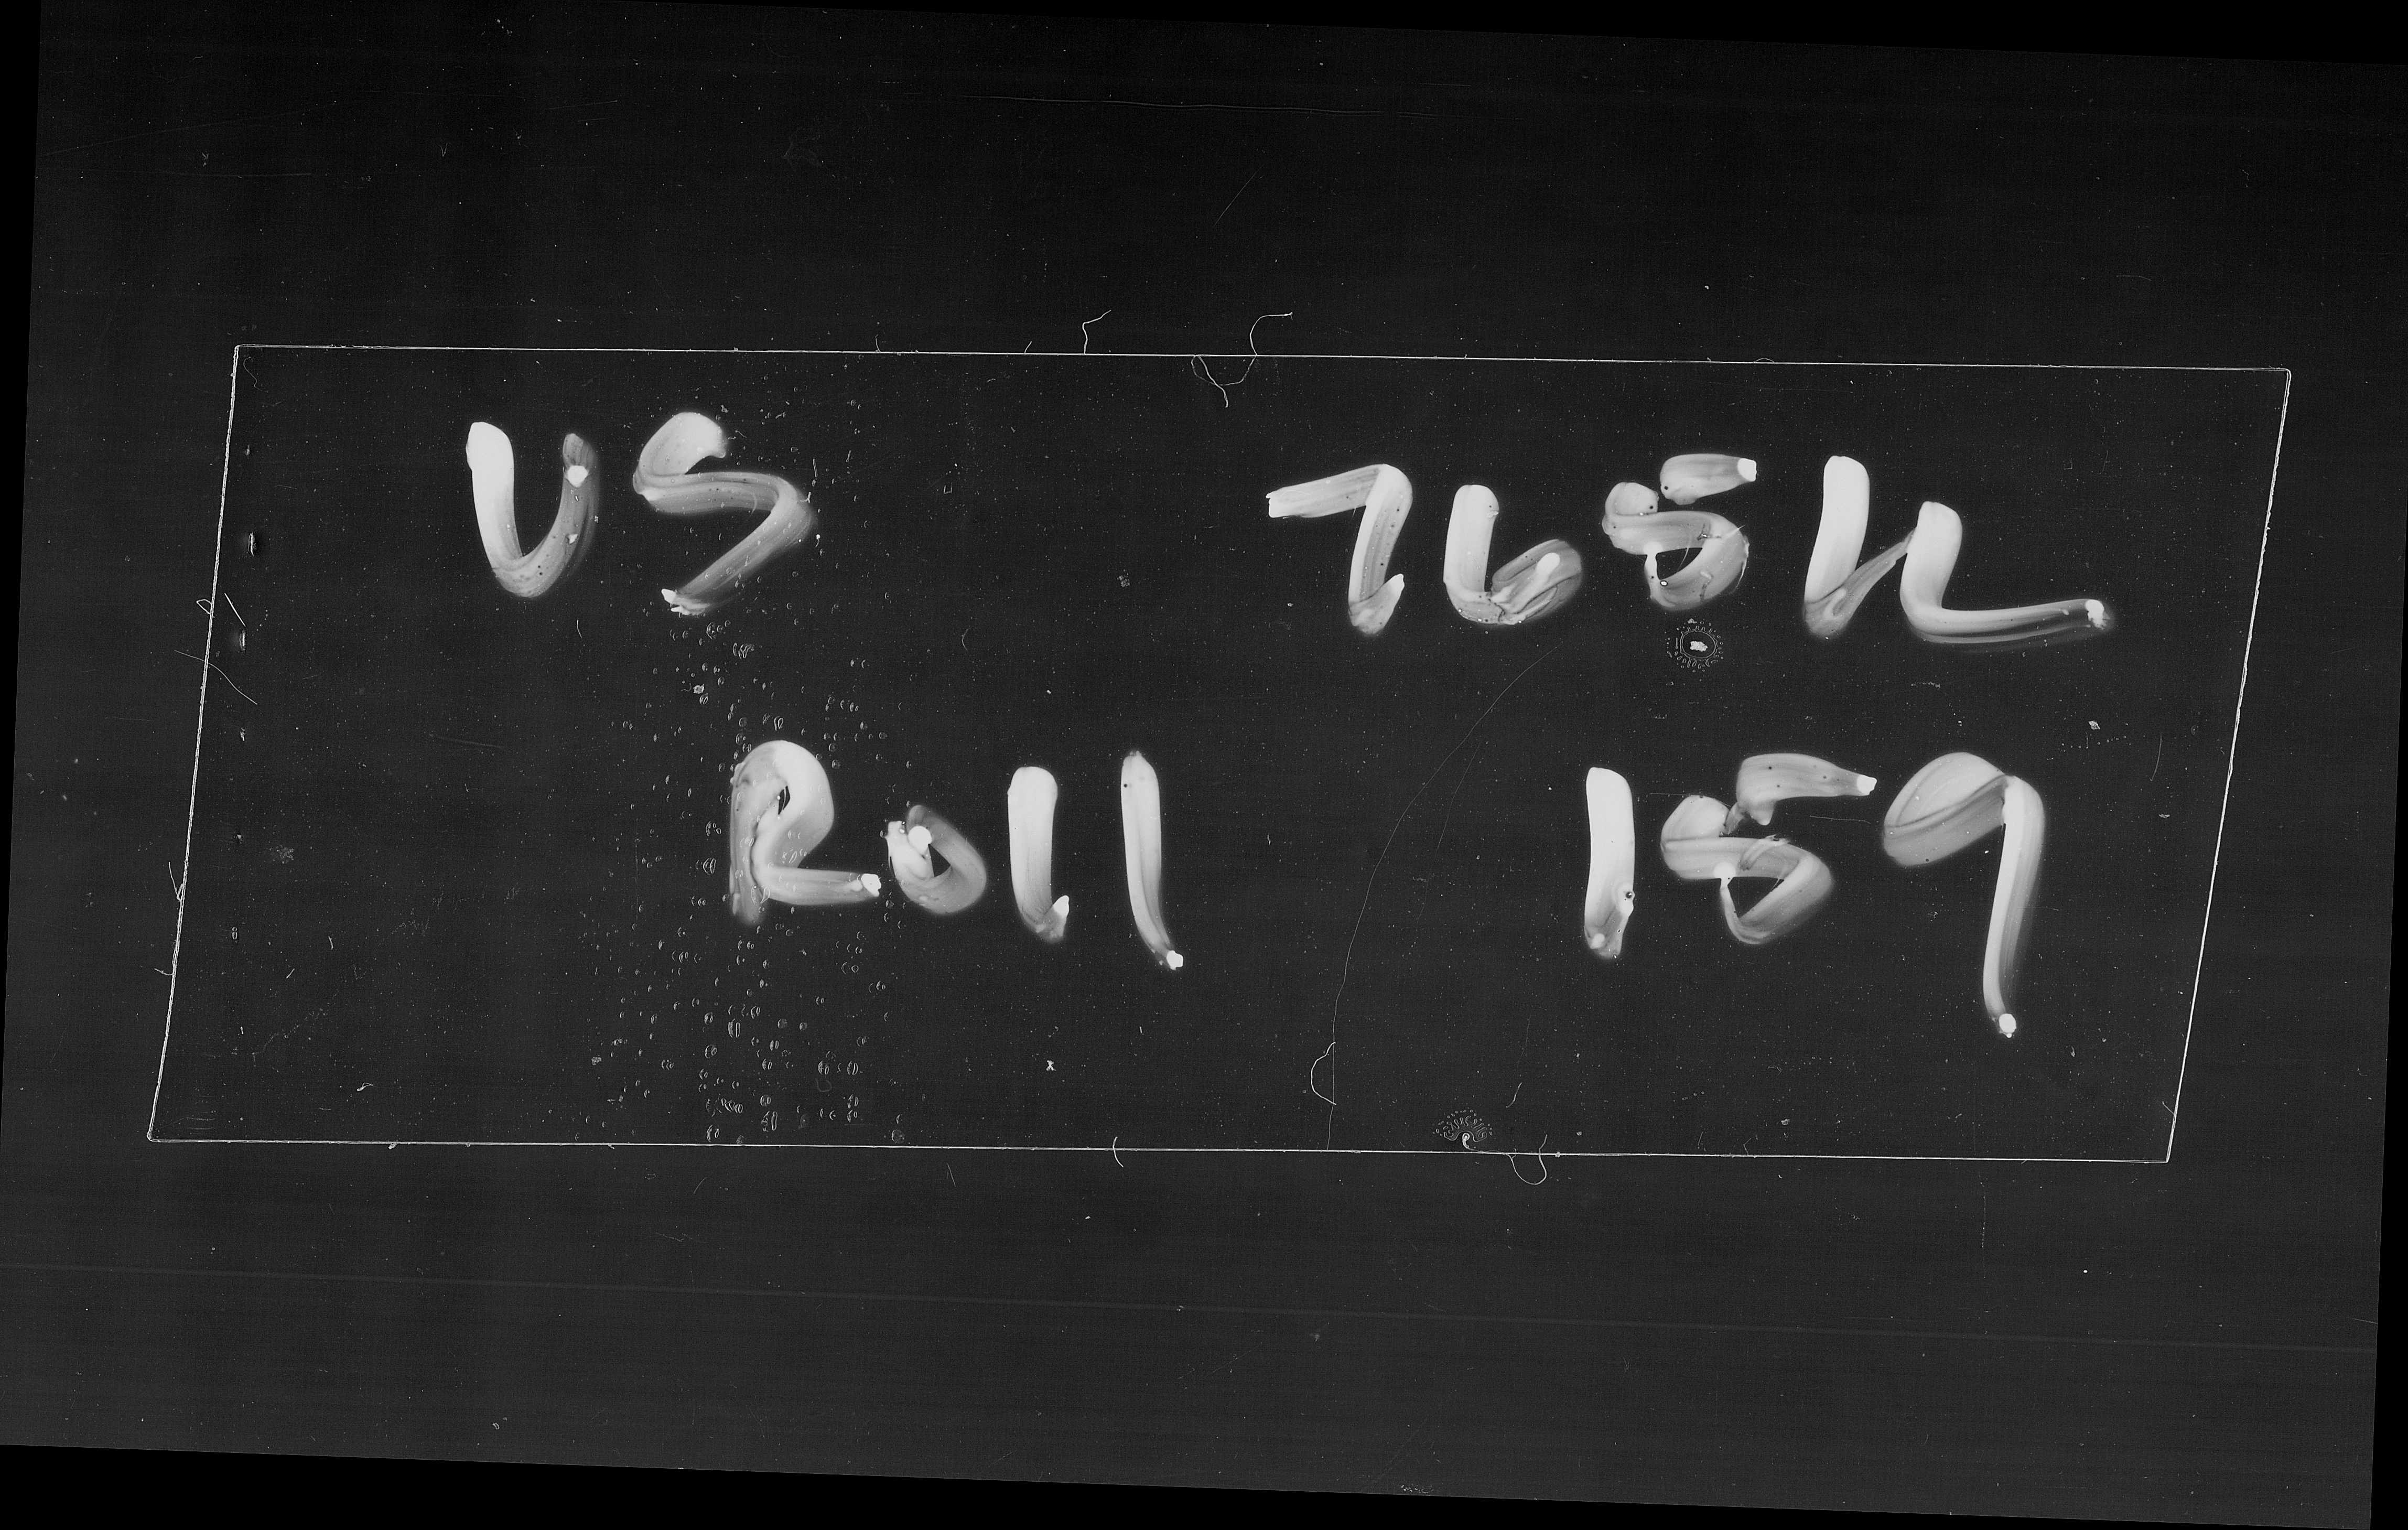 US 765h
Roll 159